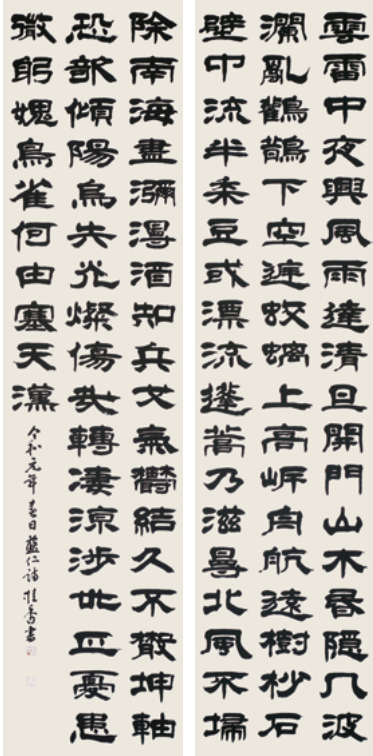 雲雷中夜興風雨達清旦開門山木昏隱几波
瀾亂鸛鵲下空遊蛟螭上高岸舟航遠樹杪石
壁中流半黍豆或漂流蓬蒿乃滋蔓北風不埽
除南海盡瀰漫酒知兵戈氣鬱結久不散坤軸
恐敧傾陽烏失光燦傷哉轉淒涼涉世足憂患
微躬愧鳥雀何由塞天漢
令和元年春日藍仁詩桂香書